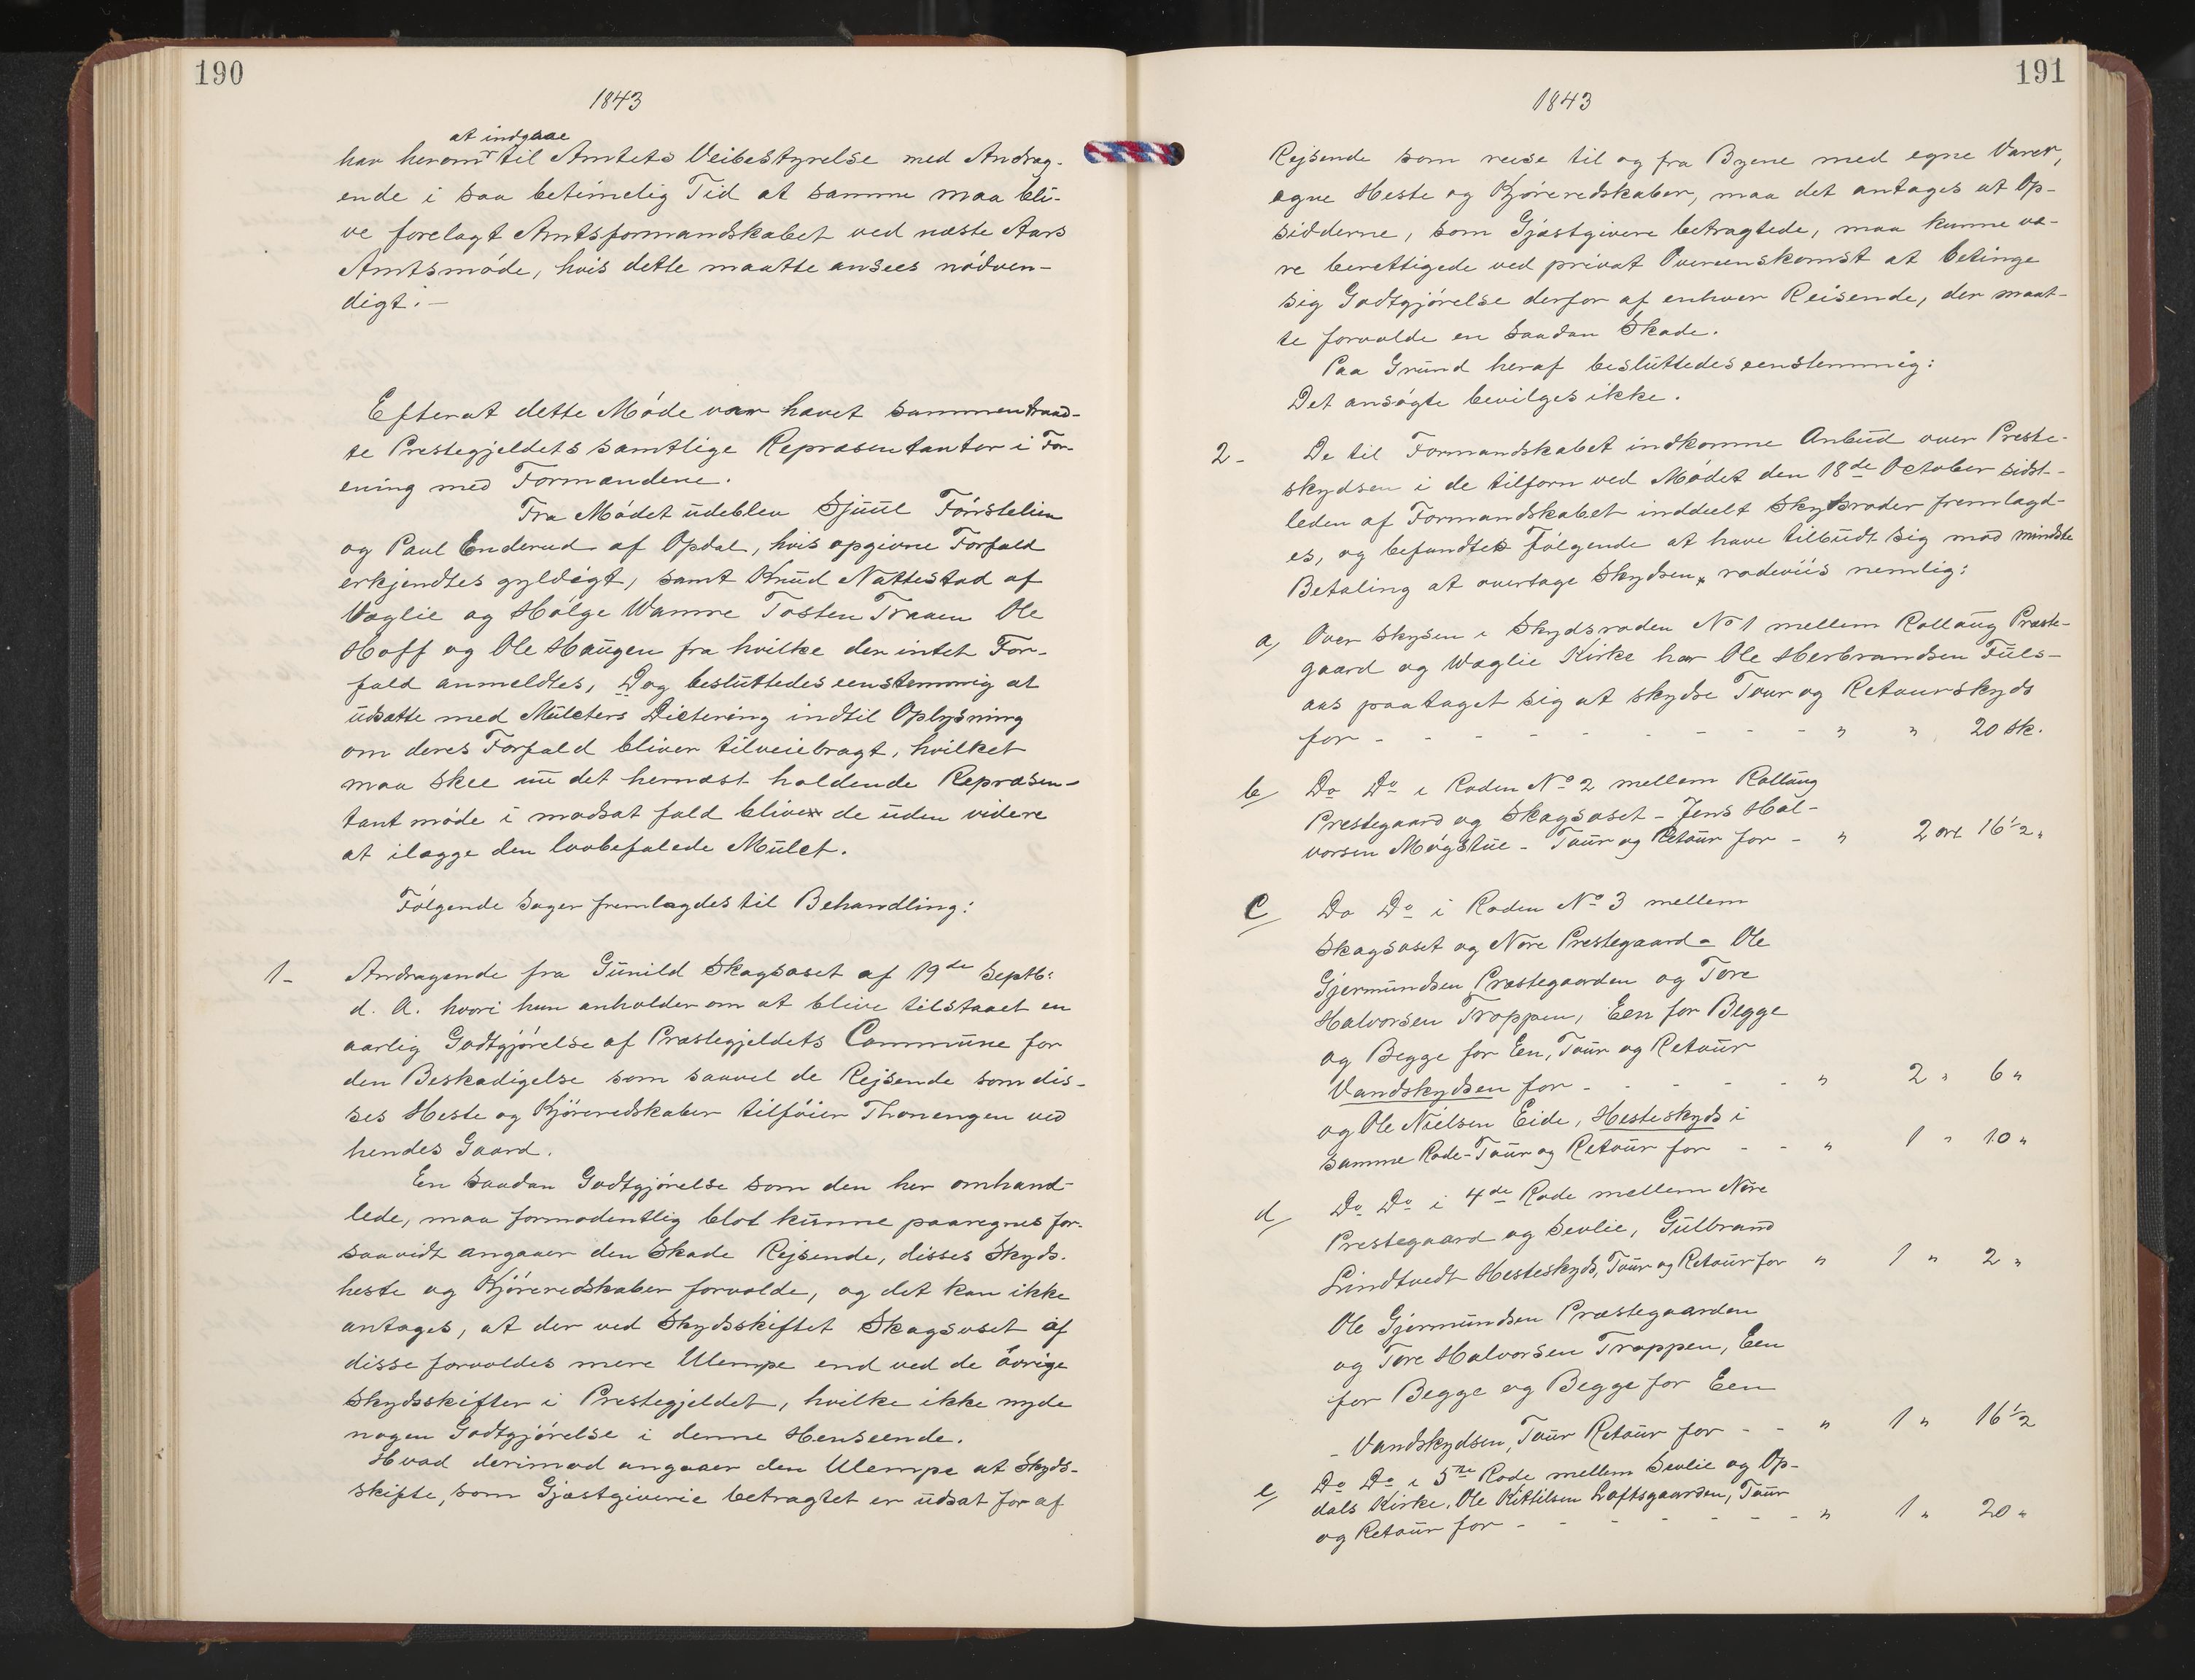 190
1843
at indgaae
har herom til Amtets Veibestyrelse med Andrag-
ende i saa betimelig Tid at samme maa bli-
ve forelagt Amtsformandskabet ved næste Aars
Amtsmøde, hvis dette maatte ansees nødven-
digt.-
Efterat dette Møde var hævet sammentraad-
te Prestegjeldets samtlige Repræsentanter i For-
ening med Formændene.
Fra Mødet udeblev Sjuul Førstelien
og Paul Enderud af Opdal, hvis opgivne Forfald
erkjendtes gyldigt, samt Knud Nattestad af
Væglie og Hølge Wamre Tosten Traaen Ole
Hoff og Ole Haugen fra hvilke der intet For-
fald anmeldtes, Dog besluttedes eenstemmig at
udsætte med Mulcters Dictering indtil Oplysning
om deres Forfald bliver tilveiebragt, hvilket
maa skee inden det hernæst holdende Repræsen-
tant møde i modsat fald bliver de uden videre
at ilægge den lovbefalede Mulct.
Følgende Sager fremlagdes til Behandling:
1- Andragende fra Gunild Skagsoset af 19de Septb:
d. A. hvori hun anholder om at blive tilstaaet en
aarlig Godtgjørelse af Præstegjeldets Commune for
den Beskadigelse som saavel de Rejsende som dis-
ses Heste og Kjøreredskaber tilføier Thonengen ved
hendes Gaard.
En saadan Godtgjørelse som den her omhand-
lede, maa formodentlig blot kunne paaregnes for-
saavidt angaaer den Skade Rejsende, disses Skyds-
heste og Kjøreredskaber forvolde, og det kan ikke
antages, at der ved Skydsskiftet Skagsoset af
disse forvoldes mere Ulempe end ved de øvrige
Skydsskifter i Prestegjeldet, hvilke ikke nyde
nogen Godtgjørelse i denne Henseende.
Hvad derimod angaaer den Ulempe at Skyds-
skifte, som Gjæstgiverie betragtet er udsat for af
191
1843
Rejsende som reise til og fra Byene med egne Varer,
egne Heste og Kjøreredskaber, maa det antages at Op-
sidderne, som Gjæstgivere betragtede, maa kunne væ-
re berettigede ved privat Overeenskomst at betinge
sig Godtgjørelse derfor af enhver Reisende, der maat-
te forvolde en saadan Skade.
Paa Grund heraf besluttedes eenstemmig:
Det ansøgte bevilges ikke.
2- De til Formandskabet indkomne Anbud over Preste-
skydsen i de tilforn ved Mødet den 18de October sidst-
leden af Formandskabet inddeelt Skydsroder fremlagd-
es, og befandtes følgende at have tilbudt sig mod mindste
Betaling at overtage Skydsen, rodeviis nemlig:
a) Over Skysen i Skydsroden No 1 mellem Rollaug Præste-
gaard og Wæglie Kirke har Ole Herbrandsen Fuls-
aas paataget sig at skydse Tour og Retourskyds
for - - - - - - - - - " " 20 sk.
b) Do Do i Roden No 2 mellem Rollaug
Prestegaard og Skagsoset - Jens Hal-
vorsen Møgstue - Tour og Retour for - " 2 ort 16 1/2 "
C Do Do i Roden No 3 mellem
Skagsoset og Nore Prestegaard - Ole
Gjermundsen Præstegaarden og Tore
Halvorsen Trappen, Een for Begge
og Begge for Een, Tour og Retour
Vandskydsen for - - - - - " 2 " 6 "
og Ole Nielsen Eide, Hesteskyds i
samme Rode - Tour og Retour for - - " 1 " 10 "
d) Do Do i 4de Rode mellem Nore
Prestegaard og Sevlie, Gulbrand
Lindtvedt Hesteskyds, Tour og Retour for " 1 " 2 "
Ole Gjermundsen Præstegaarden
og Tore Halvorsen Trappen, Een
for Begge og Begge for Een
- Vandskydsen, Tour Retour for - - " 1 " 16 1/2
e) Do Do i 5te Rode mellem Sevlie og Op-
dals Kirke. Ole Kittilsen Loftsgaarden, Tour
og Retour for - - - - - - - " 1 " 20 "